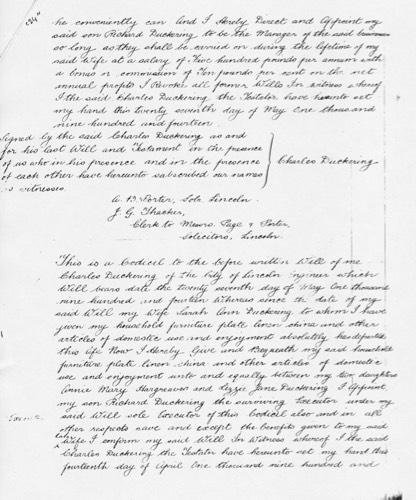 he conveniently can And I Hereby Direct and Appoint my
said son Richard Duckering to be the Manager of the said business
so long as they shall be carried on during the lifetime of my
said Wife at a salary of Five hundred pounds per annum with
a bonus or commission of Ten pounds per cent on the net
annual profits I Revoke all former Wills In witness whereof
I the said Charles Duckering the Testator have hereunto set
my hand this twenty seventh day of May One thousand
nine hundred and fourteen
Signed by the said Charles Duckering as and
for his last Will and Testament in the presence
of us who in his presence and in the presence
of each other have hereunto subscribed our names
as witnesses
Charles Duckering
Porter, Lincoln
J. G. Thacker,
Clerk to Messrs. Page & Porter,
Solicitors, Lincoln.
This is a Codicil to the before written Will of me
Charles Duckering of the City of Lincoln Engineer which
Will bears date the twenty seventh day of May One thousand
nine hundred and fourteen Whereas since the date of my
said Will my Wife Sarah Ann Duckering to whom I have
given my household furniture plate linen china and other
articles of domestic use and enjoyment absolutely has departed
this life Now I Hereby Give and Bequeath my said household
furniture plate linen china and other articles of domestic
use and enjoyment unto and equally between my two daughters
Annie Mary Hargreaves and Lizzie Jane Duckering I Appoint
my son Richard Duckering the surviving Executor under my
said Will sole Executor of this Codicil also and in all
other respects save and except the benefits given to my said
late Wife I confirm my said Will In Witness whereof I the said
Charles Duckering the Testator have hereunto set my hand this
fourteenth day of April One thousand nine hundred and